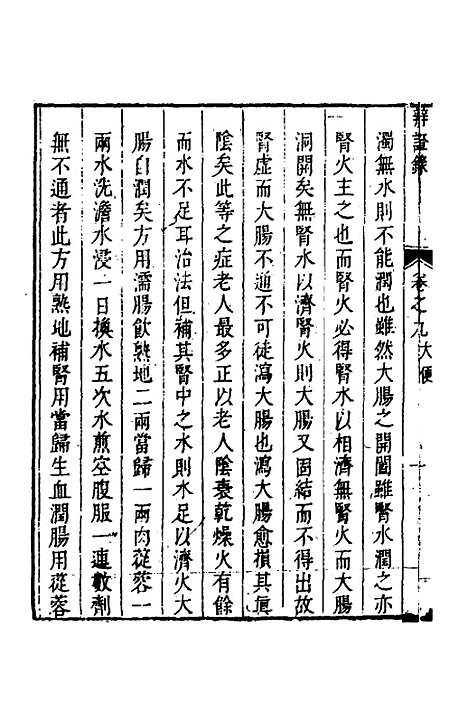 辨證錄
卷之九大便
濁無水則不能潤也雖然大腸之開闔雖腎水潤之亦
腎火主之也而腎火必得腎水以相濟無腎火而大腸
洞開矣無腎水以濟腎火則大腸又固結而不得出故
腎虛而大腸不通不可徒瀉大腸也瀉大腸愈損其眞
陰矣此等之症老人最多正以老人陰衰乾燥火有餘
而水不足耳治法但補其腎中之水則水足以濟火大
腸自潤矣方用濡腸飲熟地二兩當歸一兩肉蓯蓉一
兩水洗澹水浸一日換水五次水煎空腹服一連數劑
無不通者此方用熟地補腎用當歸生血潤腸用蓯蓉